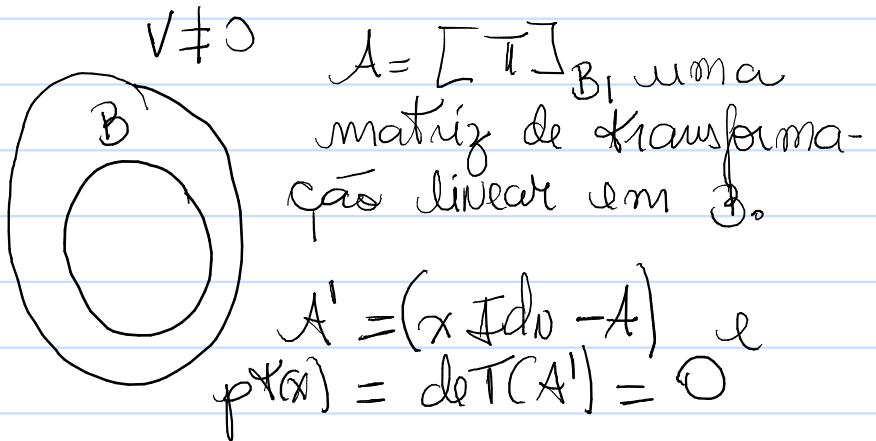 V ≠ 0
A = [T]_B, uma
B
matriz de transforma-
ção linear em B.
A' = (x Id_N - A) e
p^T(x) = deT(A') = 0